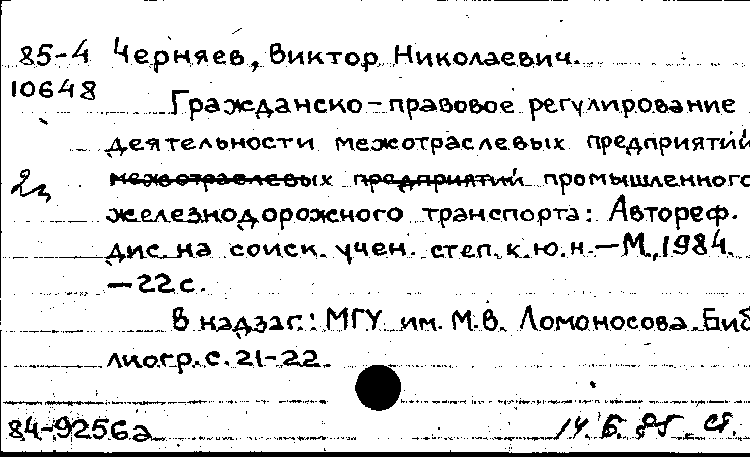 85-4 Черняев, Виктор Николаевич.
10648
Гражданско-правовое регулирование
деятельности межотраслевых предприятий
межотраслевых предприятий промышленного
железнодорожного транспорта: Автореф.
дис. на соиск. учен. степ. к.ю.н. — М., 1984.
— 22 с.
В надзаг.: МГУ им. М.В. Ломоносова. Биб
лиогр. с. 21-22.
84-9256а